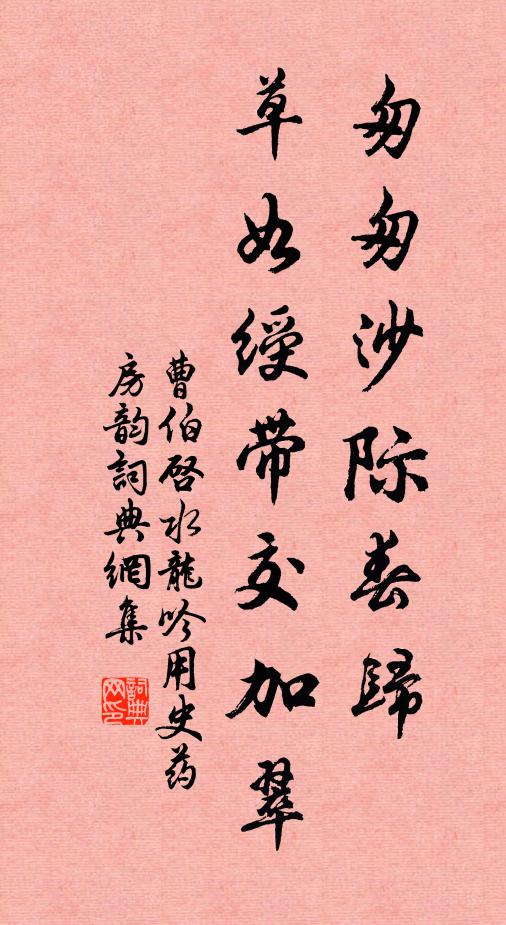 匆匆沙际春歸
草如綬带交加翠
曹伯啓水龍吟用史药
房韵詞典網集
詞典
网印